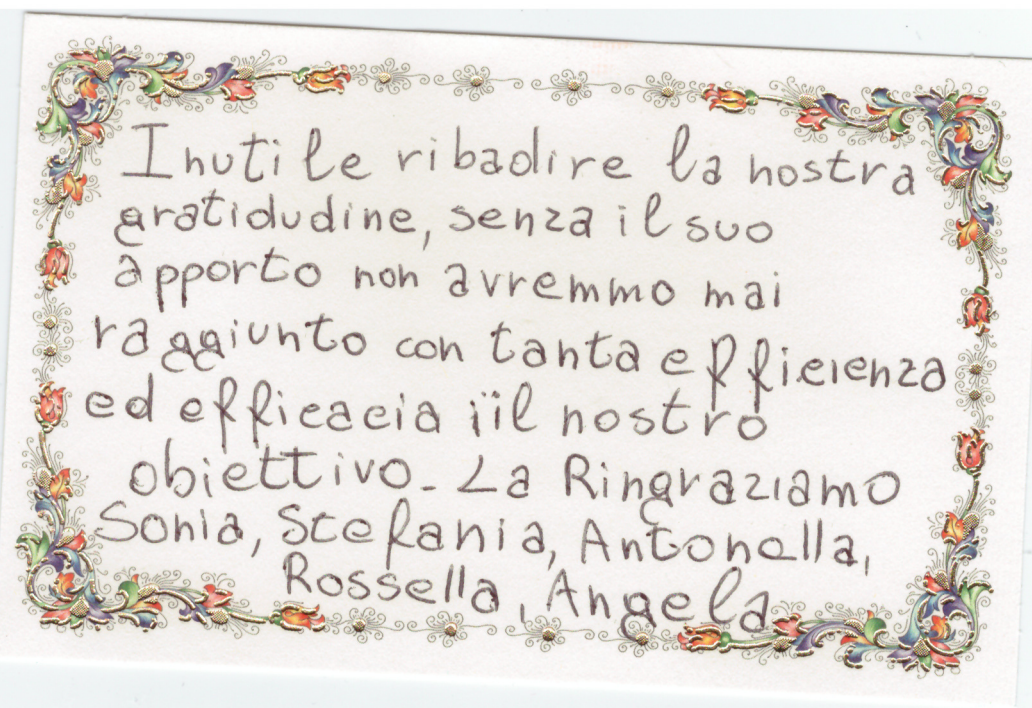 Inutile ribadire la nostra
gratidudine, senza il suo
apporto non avremmo mai
raggiunto con tanta efficienza
ed efficacia iil nostro
obiettivo. La Ringraziamo
Sonia, Stefania, Antonella,
Rossella, Angela